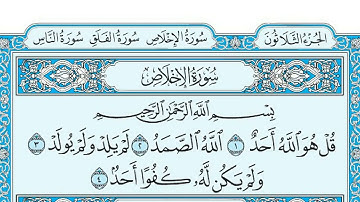 الجزء الثلاثون سورة الإخلاص سورة الفلق سورة الناس
سُورَةُ الإِخْلَاصِ
بِسْمِ اللَّهِ الرَّحْمَٰنِ الرَّحِيمِ
قُلْ هُوَ اللَّهُ أَحَدٌ ١ اللَّهُ الصَّمَدُ ٢ لَمْ يَلِدْ وَلَمْ يُولَدْ ٣
وَلَمْ يَكُن لَّهُۥ كُفُوًا أَحَدٌۢ ٤